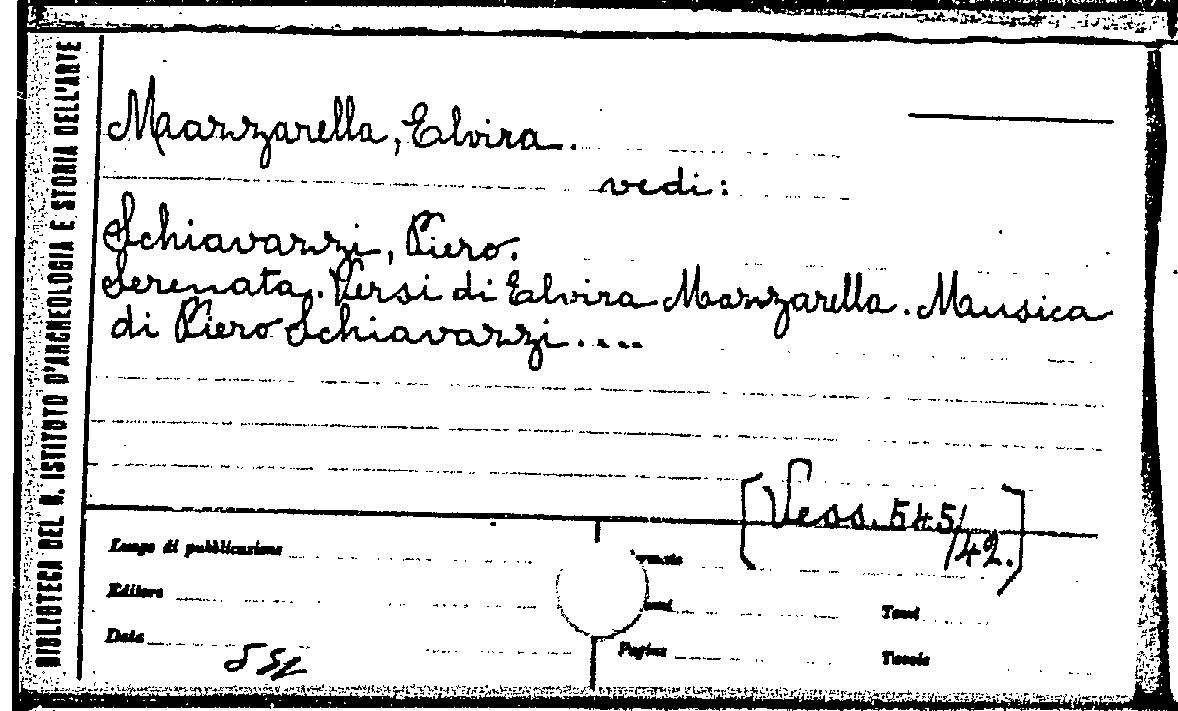 BIBLIOTECA DEL R. ISTITUTO D'ARCHEOLOGIA E STORIA DELL'ARTE
Manzzarella, Elvira.
vedi:
Schiavazzi, Piero.
Serenata. Versi di Elvira Manzarella. Musica
di Piero Schiavazzi....
[Vess. 545/
/42.]
Luogo di pubblicazione
Editore
Data
Pagine
Tomi
Tavole